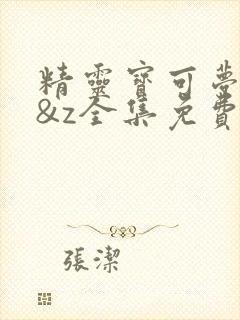 精靈寶可夢
&z全集免費
張潔